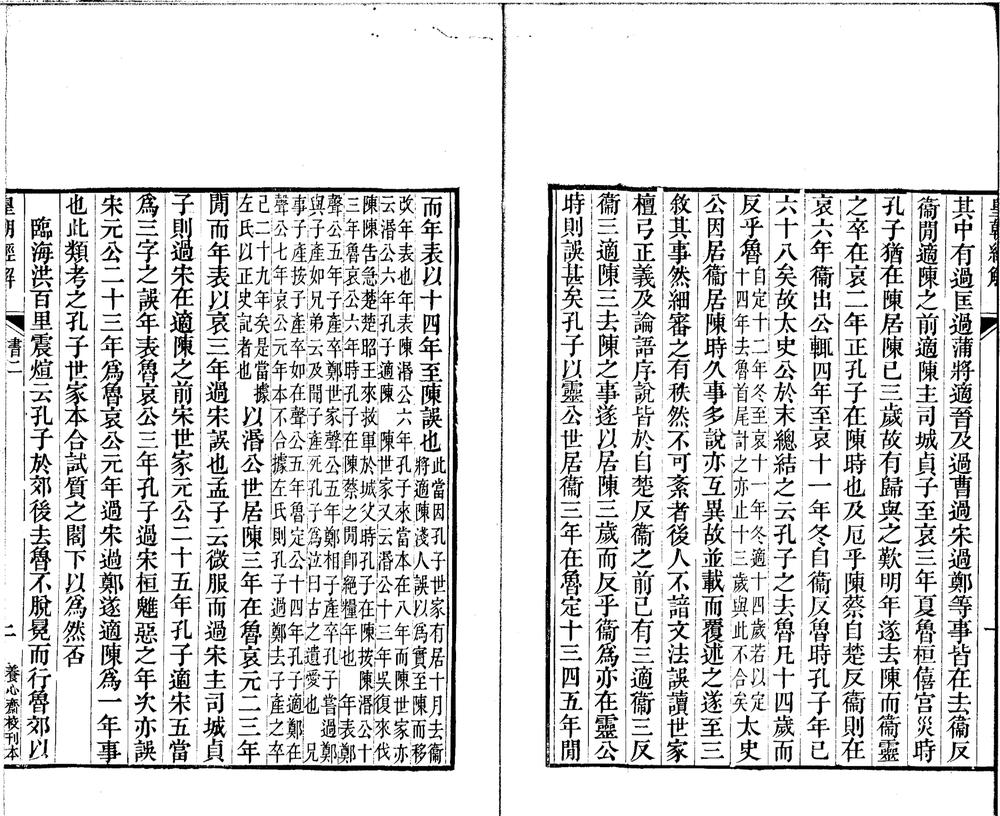 皇朝經解
其中有過匡過蒲將適晉及過曹過宋過鄭等事皆在去衞反
衞閒適陳之前適陳主司城貞子至哀三年夏魯桓僖宮災時
孔子猶在陳居陳已三歲故有歸與之歎明年遂去陳而衞靈
之卒在哀二年正孔子在陳時也及厄乎陳蔡自楚反衞則在
哀六年衞出公輒四年至哀十一年冬自衞反魯時孔子年已
六十八矣故太史公於末總結之云孔子之去魯凡十四歲而
反乎魯自定十二年冬至哀十一年冬適十四歲若以定
十四年去魯首尾計之亦止十三歲與此不合矣太史
公因居衞居陳時久事多說亦互異故並載而覆述之遂至三
敘其事然細審之有秩然不可紊者後人不諳文法誤讀世家
檀弓正義及論語序說皆於自楚反衞之前已有三適衞三反
衞三適陳三去陳之事遂以居陳三歲而反乎衞為亦在靈公
時則誤甚矣孔子以靈公世居衞三年在魯定十三四五年閒
而年表以十四年至陳誤也此當因孔子世家有居十月去衞
將適陳淺人誤以為實至陳而移
改年表也年表陳湣公六年孔子來當本在八年而陳世家亦
云湣公六年孔子適陳 陳世家又云湣公十三年吳復來伐
陳陳告急楚楚昭王來救軍於城父時孔子在陳按陳湣公十
三年魯哀公六年時孔子在陳蔡之閒卽絕糧年也 年表鄭
聲公五年子產卒鄭世家聲公五年鄭相子產卒孔子嘗過鄭
與子產如兄弟云及聞子產死孔子為泣曰古之遺愛也 兄
事子產按子產卒如在聲公五年魯定公十四年孔子適鄭在
聲公七年哀公元年本不合據左氏則孔子過鄭去子產之卒
已二十九年矣是當據
左氏以正史記者也以湣公世居陳三年在魯哀元二三年
閒而年表以哀三年過宋誤也孟子云微服而過宋主司城貞
子則過宋在適陳之前宋世家元公二十五年孔子適宋五當
為三字之誤年表魯哀公三年孔子過宋桓魋惡之年次亦誤
宋元公二十三年為魯哀公元年過宋過鄭遂適陳為一年事
也此類考之孔子世家本合試質之閣下以為然否
臨海洪百里震煊云孔子於郊後去魯不脫冕而行魯郊以
皇朝經解 書二 二 養心齋校刊本